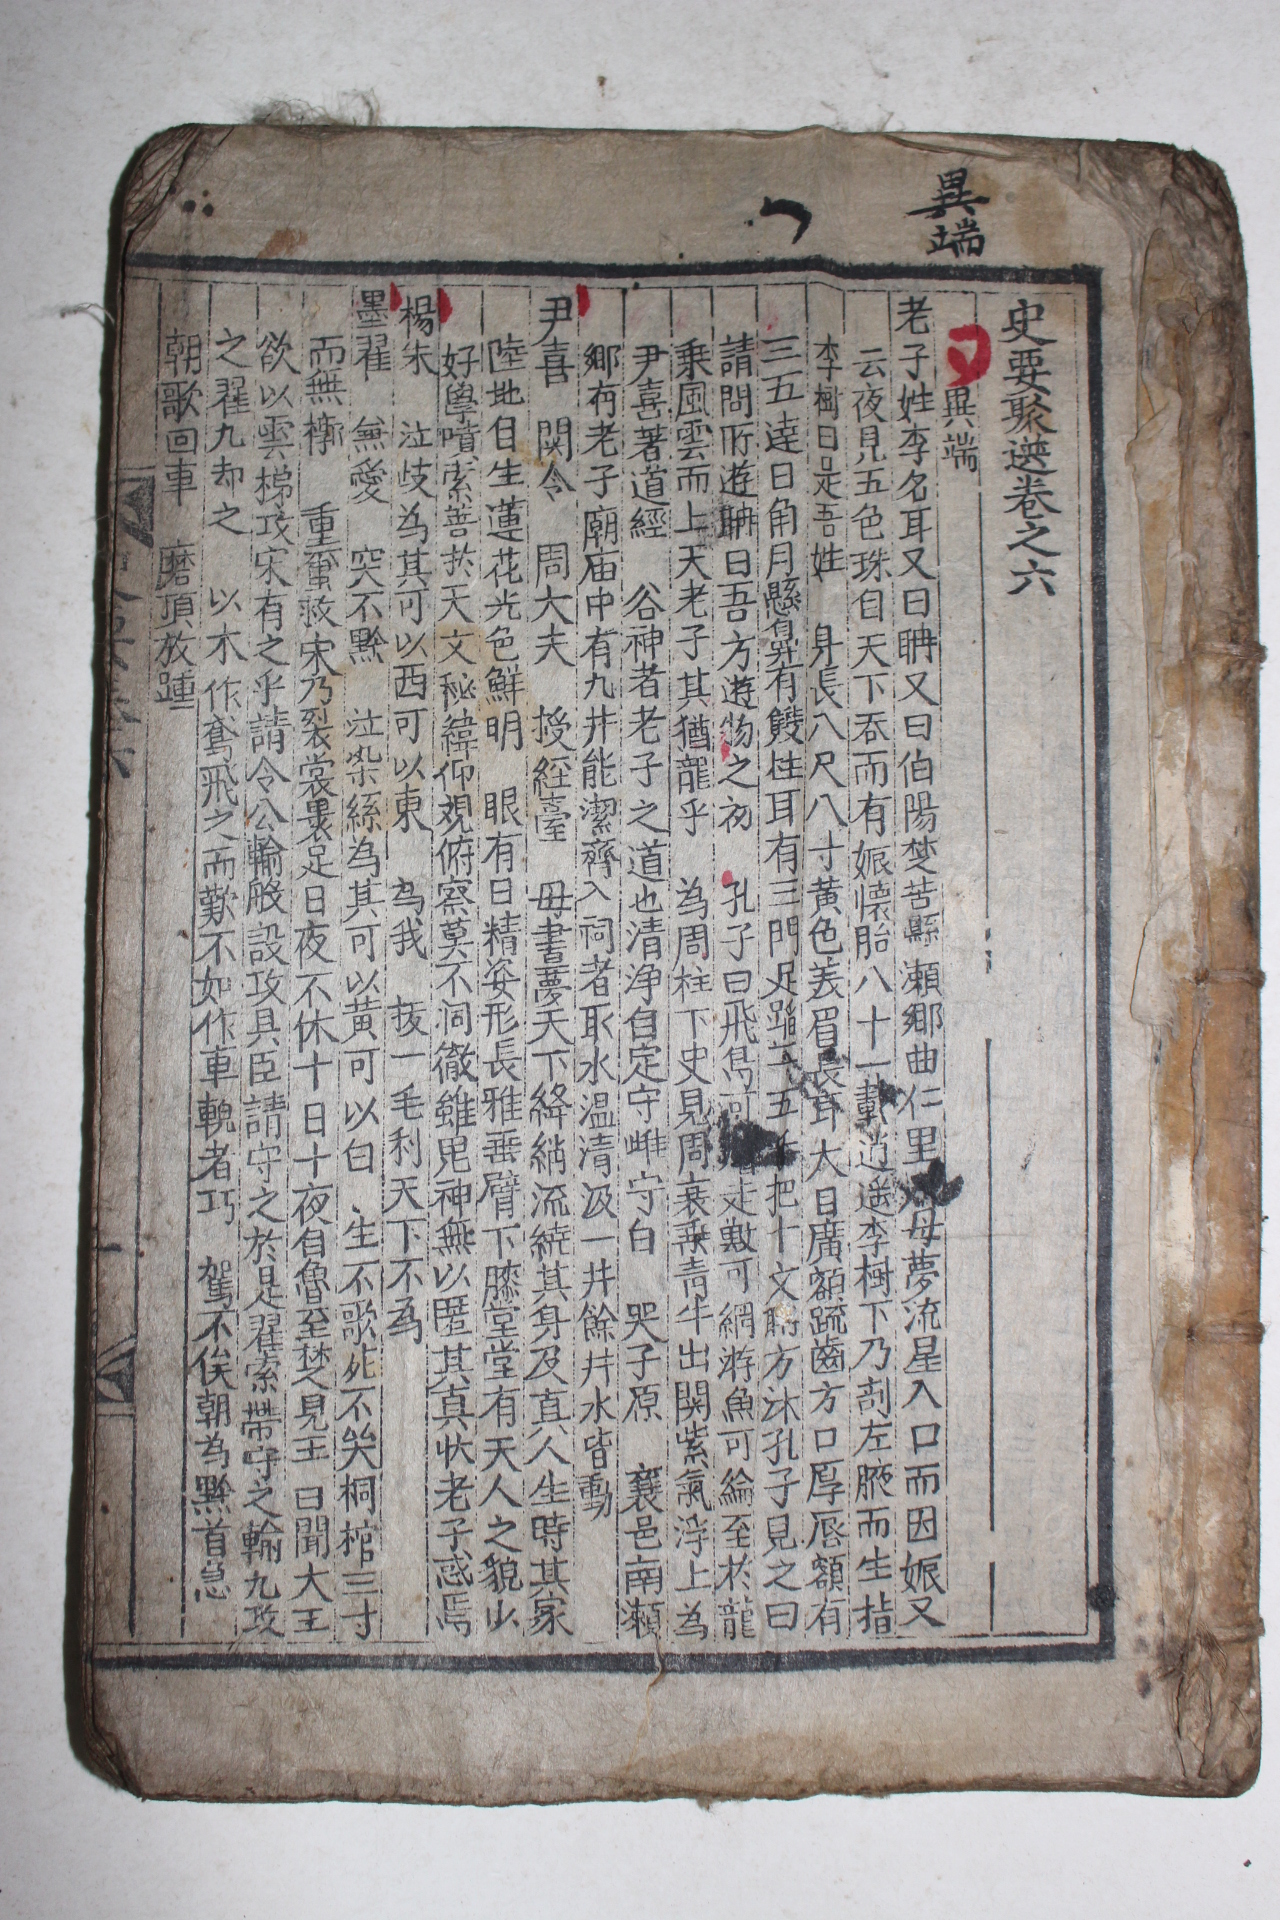 異端
史要聚選卷之六
異端
老子姓李名耳又曰聃又曰伯陽楚苦縣瀬鄉曲仁里 母夢流星入口而因娠又
云夜見五色珠自天下吞而有娠懷胎八十一載逍遥李樹下乃剖左腋而生指
李樹曰是吾姓 身長八尺八寸黃色美眉長耳大目廣額疏齒方口厚唇額有
三五逹日角月懸鼻有雙柱耳有三門足蹈 五手把十文 方沐孔子見之曰
請問所遊聃曰吾方遊物之初 孔子曰飛鳥可 走獸可網游魚可綸至於龍
乘風雲而上天老子其猶龍乎 為周柱下史見周衰乘青牛出関紫氣浮上為
尹喜著道經 谷神者老子之道也清净自定守雌守白 哭子原 襄邑南瀬
鄉有老子廟庙中有九井能潔齊入祠者取水温清汲一井餘井水皆動
尹喜 関令 周大夫 授經臺 母晝夢天下絳綃流繞其身及真人生時其家
陸地自生蓮花光色鮮明 眼有日精姿形長雅垂臂下膝堂堂有天人之貌少
好學噴索善於天文秘緯仰觀俯察莫不洞徹雖鬼神無以匿其真狀老子惑焉
楊朱 泣歧為其可以西可以東 為我 拔一毛利天下不為
墨翟 無愛 突不黔 泣染絲為其可以黃可以白 生不歌死不哭桐棺三寸
而無槨 重繭救宋乃裂裳裹足日夜不休十日十夜自魯至楚見王曰聞大王
欲以雲梯攻宋有之乎請令公輸般設攻具臣請守之於是翟索帶守之輸九攻
之翟九却之 以木作鳶飛之而歎不如作車輗者巧 駕不俟朝為黔首急
朝歌回車 磨頂放踵